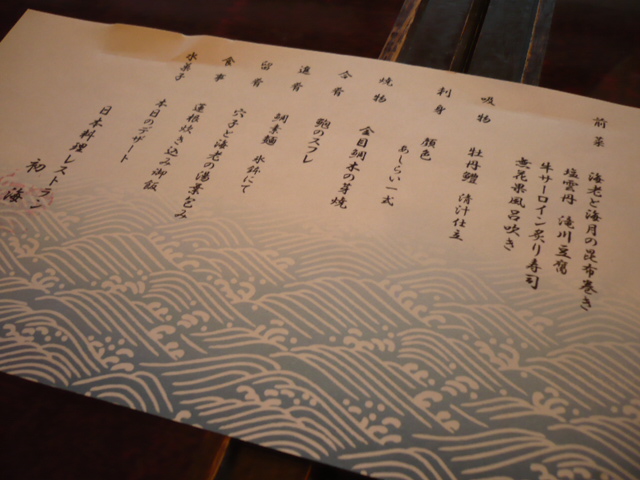 前菜
海老と海月の昆布巻き
塩雲丹 滝川豆腐
牛サーロイン炙り寿司
無花果風呂吹き
吸物
牡丹鱧 清汁仕立
刺身
顔色
あしらい一式
焼物
金目鯛木の芽焼
合肴
鮑のスフレ
進肴
鯛素麺 氷鉢にて
留肴
穴子と海老の湯葉包み
食事
蓮根炊き込み御飯
水菓子
本日のデザート
日本料理レストラン
初海